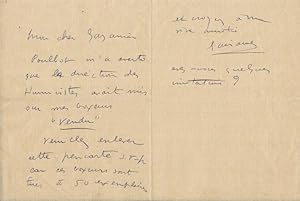 Mon cher Gazanion
Poulbot m'a averti
que la direction des
Humoristes avait mis
sur mes boxeurs
"Vendu"
veuillez enlever
cette pancarte s.v.p
car ces boxeurs sont
tirés à 50 exemplaires
et croyez à ma
vive amitié
avez-vous quelques
invitations ?